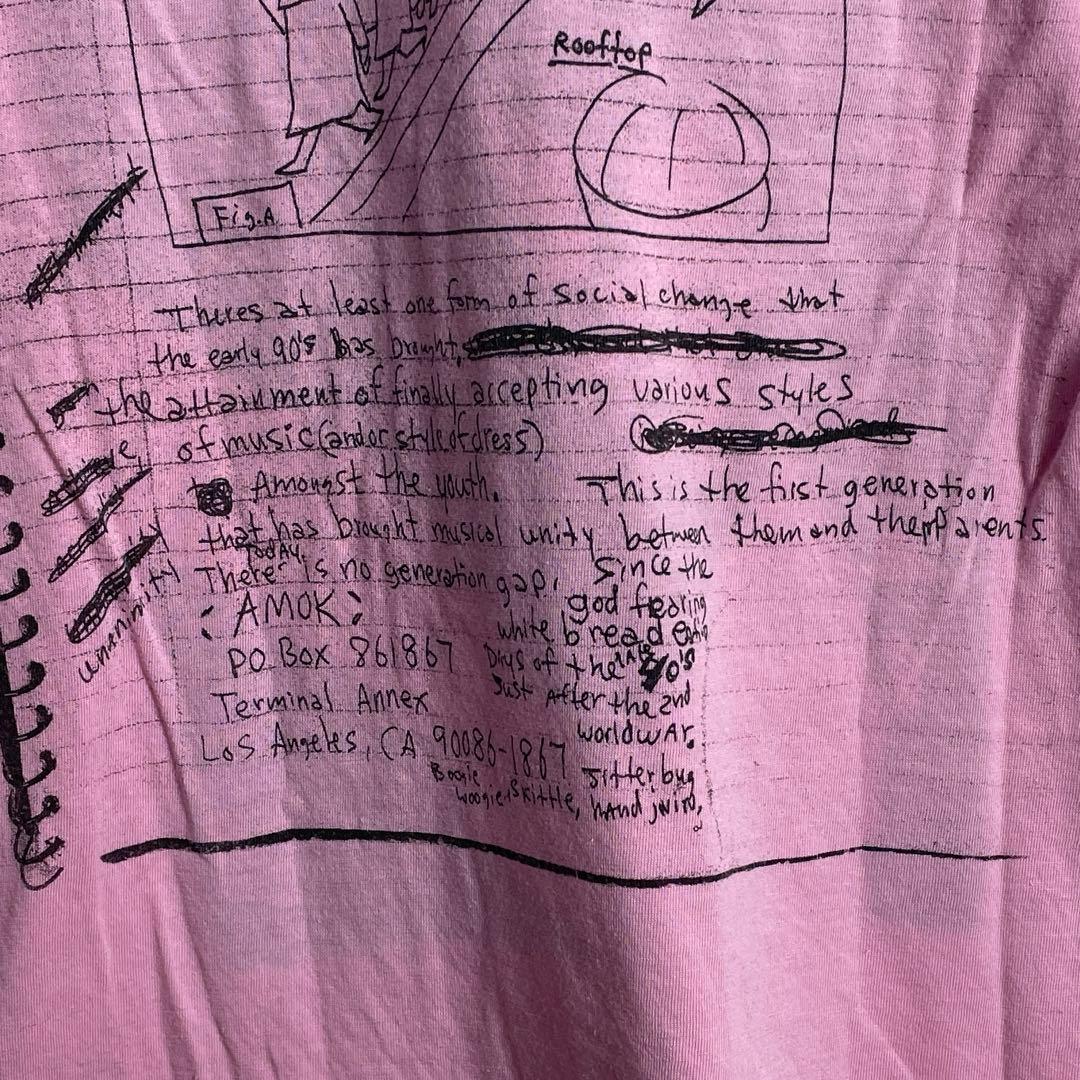 Rooftop
Fig. A
Theres at least one form of social change that
the early 90's has brought,
the attainment of finally accepting various styles
of music (and or style of dress)
Amongst the youth. This is the first generation
that has brought musical unity between them and their parents.
Today,
There is no generation gap, Since the
god fearing
white bread
Days of the late 40's
Just After the 2nd
world wAr,
Jitterbug
Boogie
woogie, Skittle, hand jwird,
AMOK
PO Box 861867
Terminal Annex
Los Angeles, CA 90086-1867
unaninity